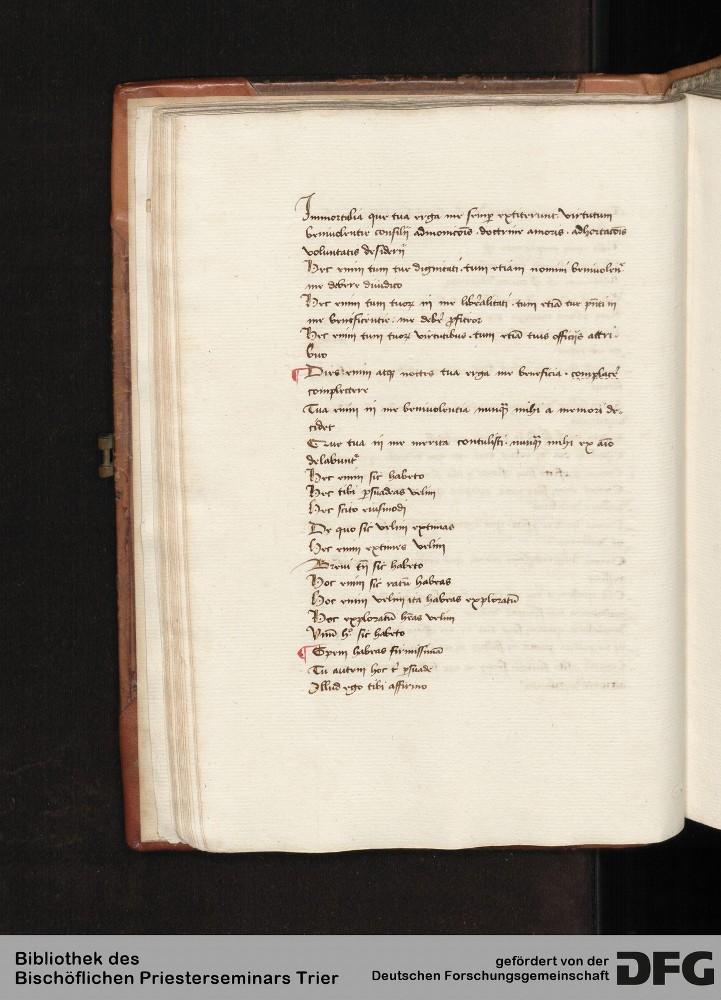 Immortalia que tua erga me semp extiterunt virtutum
benivolentie consilij admonicōis · doctrine amoris · adhortacōis
voluntatis desiderij
Hec enim tum tue dignitati · tum etiam nomini benivolen
me debere diiudico
Hec enim tum tuoꝝ in me libēalitati · tum etiā tue in
me beneficentie · me debē ꝓfiteor
Hec enim tum tuoꝝ virtutibus · tum etiā tuis officijs attri-
buo
Dies enim atqꝫ noctes tua erga me beneficia · complacē
complectere
Tua enim in me benivolentia nunqꝫ mihi a memori de-
cidet
Que tua in me merita contulisti · nunqꝫ mihi ex aīo
delabunt
Hec enim sic habeto
Hec tibi ꝑsuadeas velim
Hec scito eiusmodi
De quo sic velim extimas
Hec enim extimes velim
Brevi sic habeto
Hoc enim sic ratū habeas
Hoc enim velim ita habeas exploratū
Hoc exploratū hēas velim
sic habeto
Spem habeas firmissimā
Tu autem hoc ꝑsuade
Illud ego tibi affirmo
Bibliothek des
Bischöflichen Priesterseminars Trier
gefördert von der
Deutschen Forschungsgemeinschaft
DFG